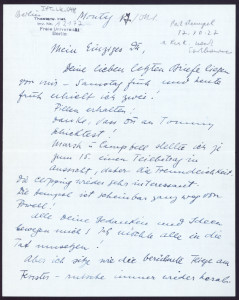 Berlin
Montag
Postempel
12.10.27
Mein Einziges Du,
Deine lieben letzten Briefe liegen
vor mir – Samstag früh und heute
früh erhielt ich zwei!
Pillen erhalten.
Danke, dass Du an Tommy
schicktest!
March – Campbell stellte dir ja
zum 15. einen Teilbetrag in
Aussicht, daher die Freundlichkeit
Die clipping wieder sehr interessant.
alle Deine Gedanken und Ideen
bewegen mich! Ich möchte alle in die
Tat umsetzen!
Aber ich sitze wie die berühmte Fliege am
Fenster – rutsche immer wieder herab.